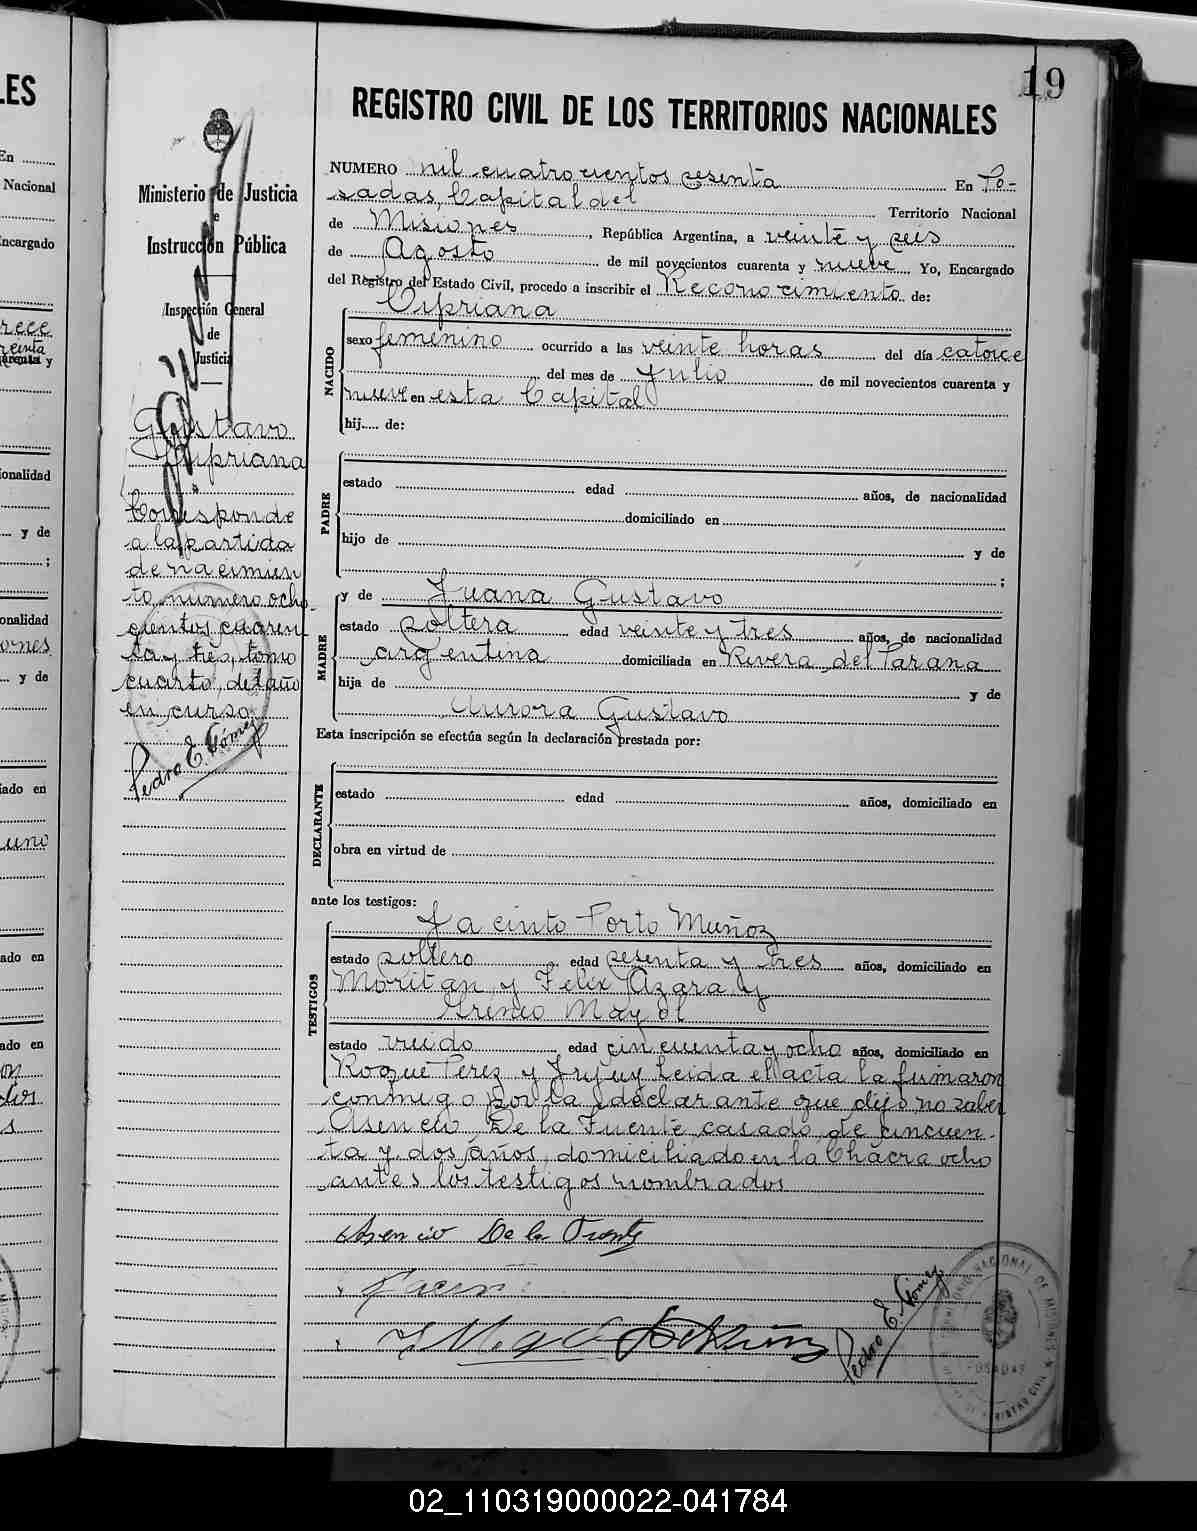 19
REGISTRO CIVIL DE LOS TERRITORIOS NACIONALES
NUMERO mil cuatrocientos sesenta En Po-
sadas, Capital del Territorio Nacional
de Misiones, República Argentina, a veinte y seis
de Agosto de mil novecientos cuarenta y nueve Yo, Encargado
del Registro del Estado Civil, procedo a inscribir el Reconocimiento de:
Cipriana
NACIDO
sexo femenino ocurrido a las veinte horas del día catorce
del mes de Julio de mil novecientos cuarenta y
nueve en esta Capital
hij.... de:
PADRE
estado edad años, de nacionalidad
domiciliado en
hijo de y de
;
MADRE
y de Juana Gustavo
estado soltera edad veinte y tres años, de nacionalidad
argentina domiciliada en Rivera del Parana
hija de y de
Aurora Gustavo
Esta inscripción se efectúa según la declaración prestada por:
DECLARANTE
estado edad años, domiciliado en
obra en virtud de
ante los testigos:
TESTIGOS
Jacinto Porto Muñoz
estado soltero edad sesenta y tres años, domiciliado en
Moritan y Felix Azara y
Irineo Mayol
estado viudo edad cincuenta y ocho años, domiciliado en
Roque Perez y Jujuy Leida el acta la firmaron
conmigo por la declarante que dijo no saber
Asencio De la Fuente casado de cincuen-
ta y dos años, domiciliado en la Chacra ocho
antes los testigos nombrados
Asencio De la Fuente
Pedro E. Gómez
Ministerio de Justicia
e
Instrucción Pública
Inspección General
de
Justicia
Gustavo
Cipriana
Corresponde
a la partida
de nacimien
to, numero ocho-
cientos cuaren
ta y tres, tomo
cuarto, del año
en curso
Pedro E. Gómez
POSADAS
ES
En
Nacional
Encargado
rece
cuarenta y
nacionalidad
y de
;
nacionalidad
y de
ado en
uno
ado en
ado en
02_110319000022-041784